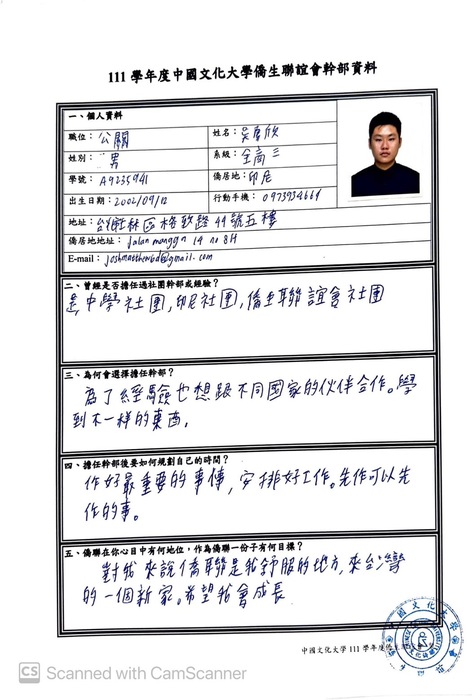 111 學年度中國文化大學僑生聯誼會幹部資料
一、個人資料
職位：公關
姓名：吳
性別：男
系級：全商三
學號：A9235941
僑居地：印尼
出生日期：2002/09/12
行動手機：0973934661
地址：台北士林區格致路 49 號五樓
僑居地地址：Jalan mangga 14 no 8H
E-mail：joshmatthew6d@gmail.com
二、曾經是否擔任過社團幹部或經驗？
是,中學社團,印尼社團,僑生聯誼會社團
三、為何會選擇擔任幹部？
為了經驗也想跟不同國家的伙伴合作。學
到不一樣的東西.
四、擔任幹部後要如何規劃自己的時間？
作好最重要的事情,安排好工作。先作可以先
作的事。
五、僑聯在你心目中有何地位，作為僑聯一份子有何目標？
對我來說僑聯是我舒服的地方,來台灣
的一個新家。希望我會成長
中國文化大學 111 學年度僑生
CS Scanned with CamScanner